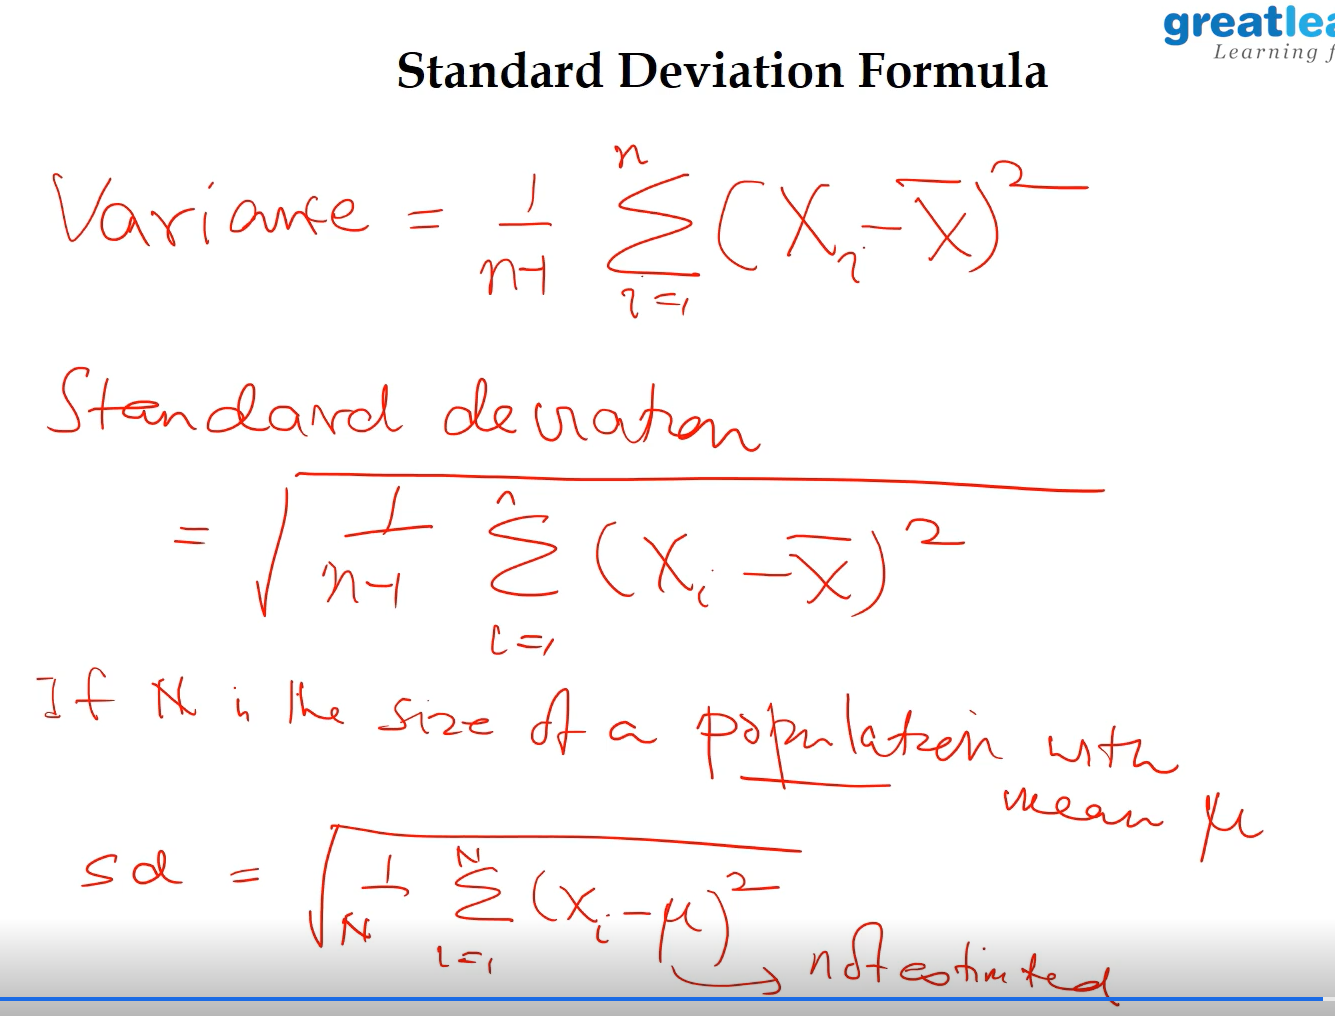 greatlea
Learning f
Standard Deviation Formula
Variance = 1/(n-1) n∑i=1 (Xi - X̅)²
Standard deviation
= √ 1/(n-1) n∑i=1 (Xi - X̅)²
If N is the size of a population with
mean μ
sd = √ 1/N N∑i=1 (xi - μ)²
not estimated